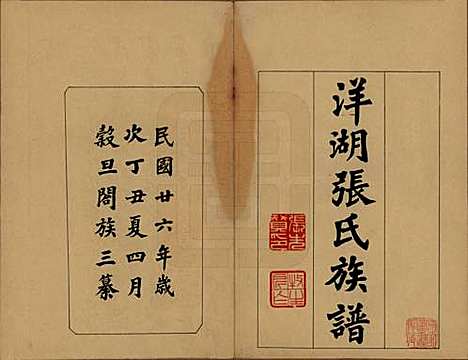 洋湖張氏族譜
民國廿六年歲
次丁丑夏四月
穀旦閤族三纂